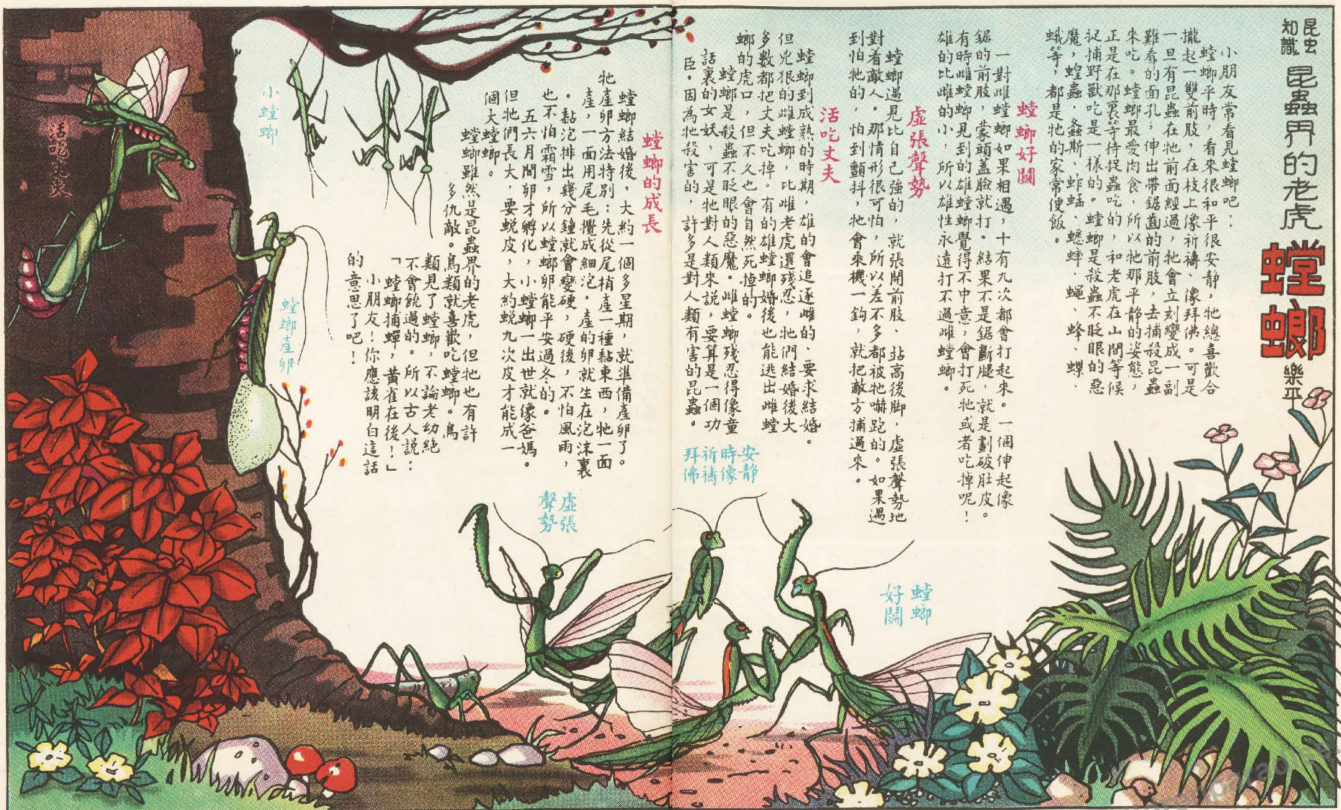 昆虫
知識
昆蟲界的老虎
螳螂
樂平
小朋友常看見螳螂吧：
螳螂平時，看來很和平很安靜，牠總喜歡合
攏起一雙前肢，在枝上像祈禱、像拜佛。可是
一旦有昆蟲在牠前面經過，牠會立刻變成一副
難看的面孔，伸出帶鋸齒的前肢，去捕殺昆蟲
來吃。螳螂最愛肉食，所以牠那平靜的姿態，
正是在那裏等待捉蟲吃的，和老虎在山間等候
捉捕野獸吃是一樣的。螳螂是殺蟲不眨眼的惡
魔，蝗蟲、螽斯、蚱蜢、蟋蟀、蠅、蜂、蝶、
蛾等，都是牠的家常便飯。
螳螂好鬪
一對螳螂如果相遇，十有九次都會打起來。一個伸起像
鋸的前肢，蒙頭蓋臉就打。結果不是鋸斷腿，就是劃破肚皮。
有時雌螳螂見到的雄螳螂覺得不中意，會打死牠或者吃掉呢！
雄的比雌的小，所以雄性永遠打不過雌螳螂。
虛張聲勢
螳螂遇見比自己強的，就張開前肢、抬高後脚，虛張聲勢地
對看敵人。那情形很可怕，所以差不多都被牠嚇跑的。如果遇
到怕牠的，怕到顫抖，牠會乘機一鈎，就把敵方捕過來。
活吃丈夫
螳螂到成熟的時期，雄的會追逐雌的、要求結婚。
但兇很的雌螳螂，比雌老虎還殘忍，牠們結婚後大
多數都把丈夫吃掉。有的雄螳螂婚後也能逃出雌螳
螂的虎口，但不久也會自然死掉的。
螳螂是殺蟲不眨眼的惡魔。雌螳螂殘忍得像童
話裏的女妖，可是牠對人類來說，要算是一個功
臣。因為牠殺害的，許多是對人類有害的昆蟲。
安靜
時像
祈禱
拜佛
螳螂
好鬪
螳螂的成長
螳螂結婚後，大約一個多星期，就準備產卵了。
牠產卵方法特別：先從尾梢產一種黏東西，牠一面
產，一面用尾毛攪成細泡。產的卵就生在泡沫裏
。黏泡排出幾分鐘就會變硬，硬後，不怕風雨，
也不怕霜雪，所以螳螂卵能平安過冬的。
五六月間卵才孵化，小螳螂一出世就像爸媽。
但牠們長大，要蛻皮，大約蛻九次皮才能成一
個大螳螂。
螳螂雖然是昆蟲界的老虎，但牠也有許
多仇敵。鳥類就喜歡吃螳螂。鳥
類見了螳螂，不論老幼絶
不會饒過的。所以古人說：
「螳螂捕蟬，黃雀在後！」
小朋友！你應該明白這話
的意思了吧！
虛張
聲勢
小螳螂
螳螂產卵
活吃丈夫